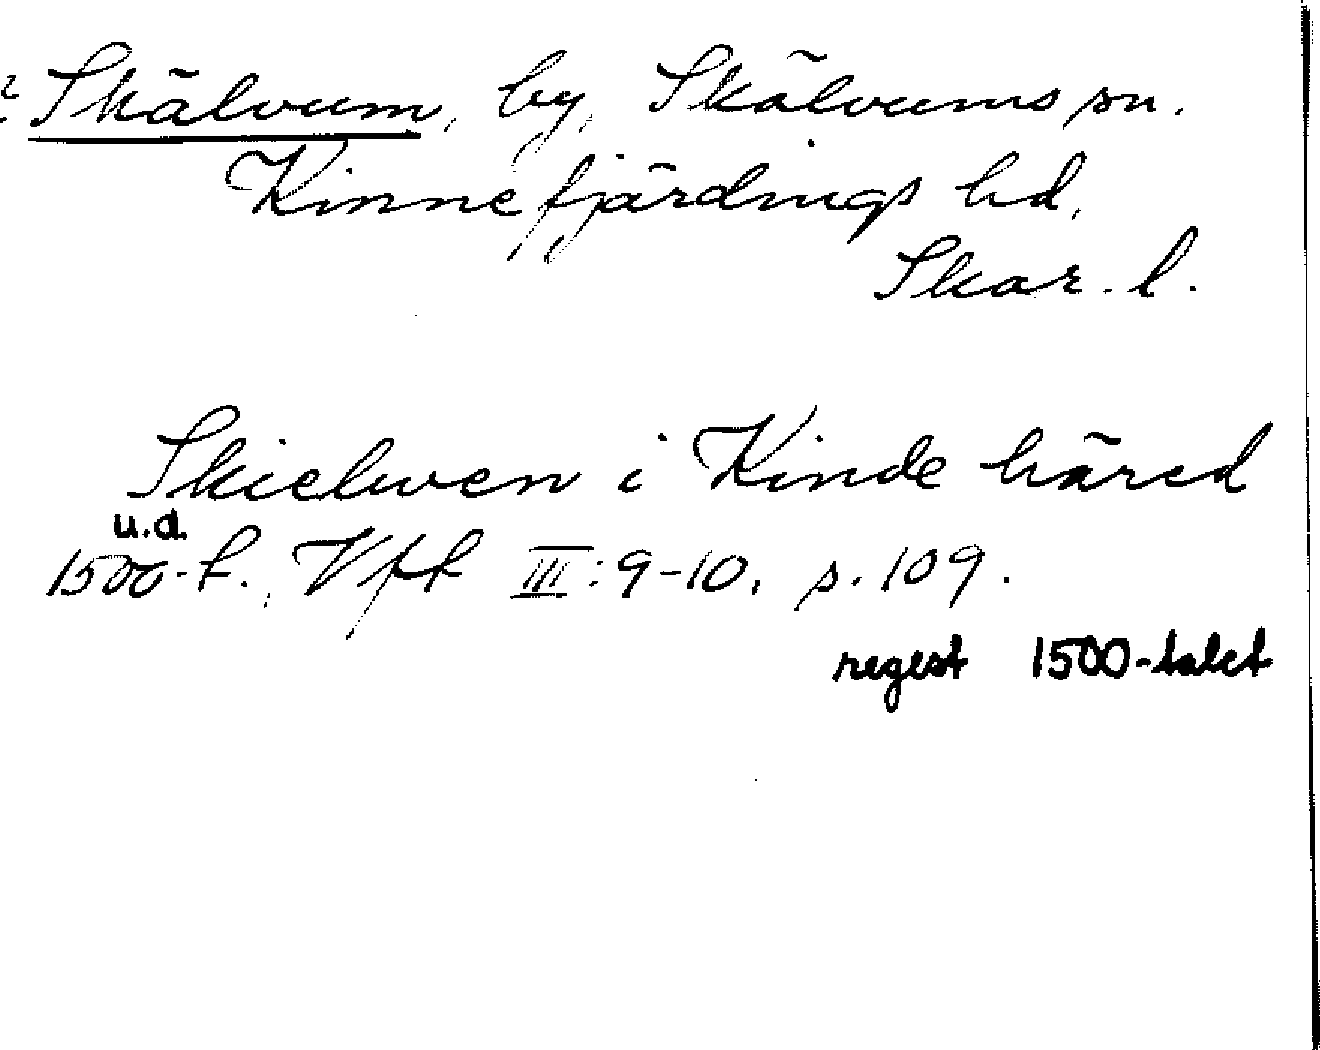 Skälvum, by, Skälvums sn.
Kinnefjärdings hd,
Skar. l.
Skielwen i Kinde häred
u.d.
1500-t. Vft III: 9-10, s. 109.
regest 1500-talet